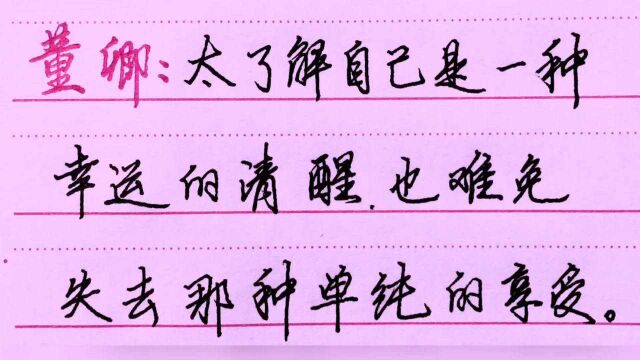 董卿：太了解自己是一种
幸运的清醒.也难免
失去那种单纯的享受。